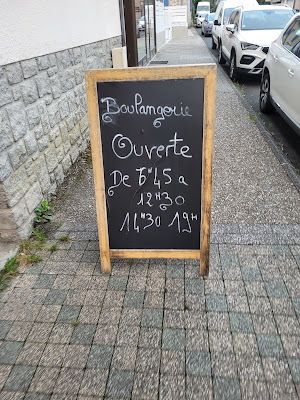 Boulangerie
Ouverte
De a
12H30
14H30 19H